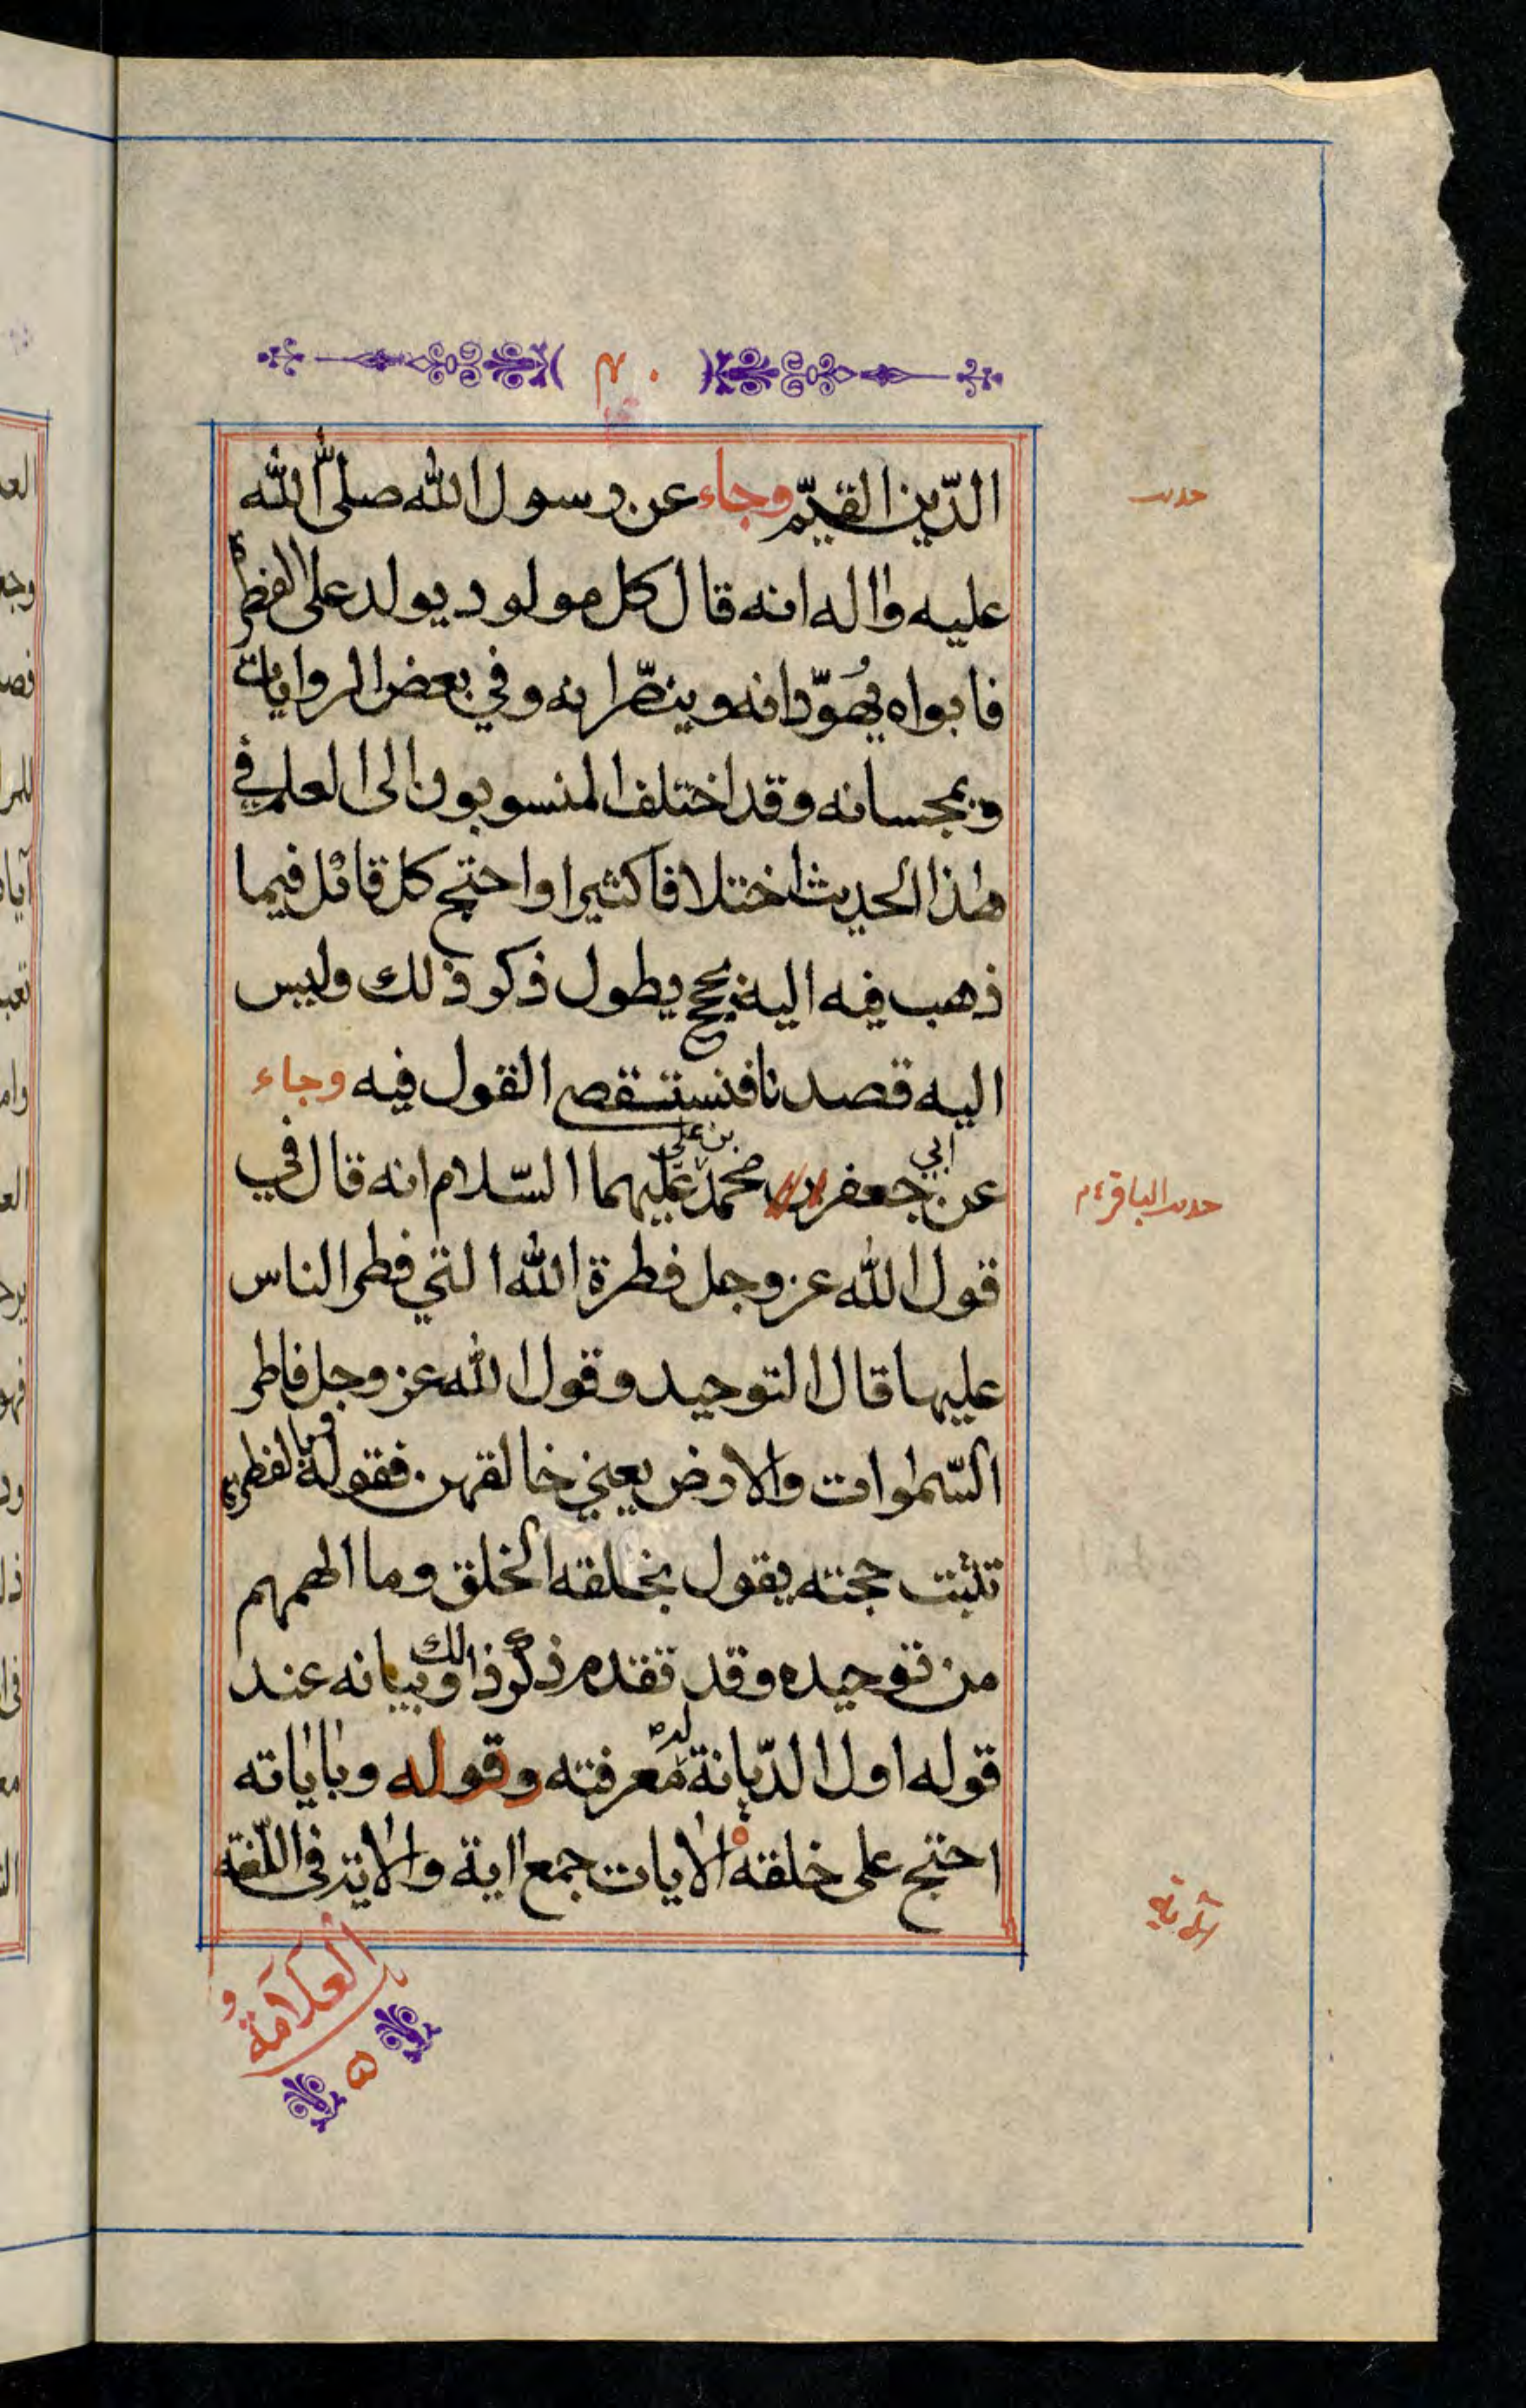 ٢٠
الدّين القيّم وجاء عن رسول الله صلّى الله
حديث
عليه واله انه قال كل مولود يولد على الفطرة
فابواه يُهَوّدانه وينصّرانه وفي بعض الروايات
ويمجسانه وقد اختلف المنسوبون الى العلم في
هٰذا الحديث اختلافا كثيرا واحتج كل قائل فيما
ذهب فيه اليه بحجج يطول ذكر ذلك وليس
اليه قصدنا فنستقصي القول فيه وجاء
عن ابي جعفر محمد بن علي عليهما السّلام انه قال في
حديث الباقر ع م
قول الله عز وجل فطرة الله التي فطر الناس
عليها قال التوحيد وقول الله عز وجل فاطر
السّمٰوات والارض يعني خالقهن. فقوله وبالفطرة
تثبت حجته يقول بخلقه الخلق وما الهمهم
من توحيده وقد تقدم ذكر ذالك وبيانه عند
قوله اول الدّيانة له معرفته وقوله وباياته
احتج على خلقه الايات جمع اية والاية في اللّغة
الآية
العَلَامَةُ